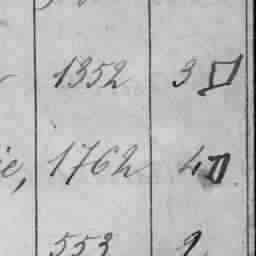 1352 3 □
ie, 1762 4 □
553 2